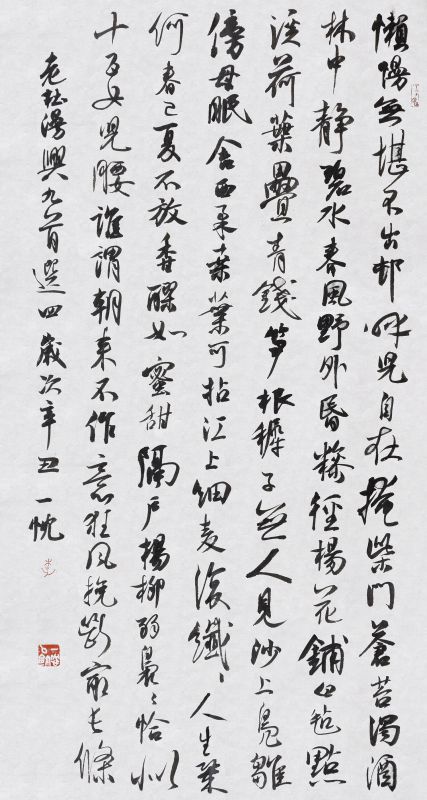 懶慢無堪不出邨呼兒自在掩柴門蒼苔濁酒
林中靜碧水春風野外昏糝徑楊花鋪白氈點
溪荷葉疊青錢筍根稺子無人見沙上鳧雛
傍母眠舍西柔桑葉可拈江上細麥復纖〻人生幾
何春已夏不放香醪如蜜甜隔戶楊柳弱裊〻恰似
十五女兒腰誰謂朝來不作意狂風挽斷最長條
老杜漫興九首選四歲次辛丑一忱
李